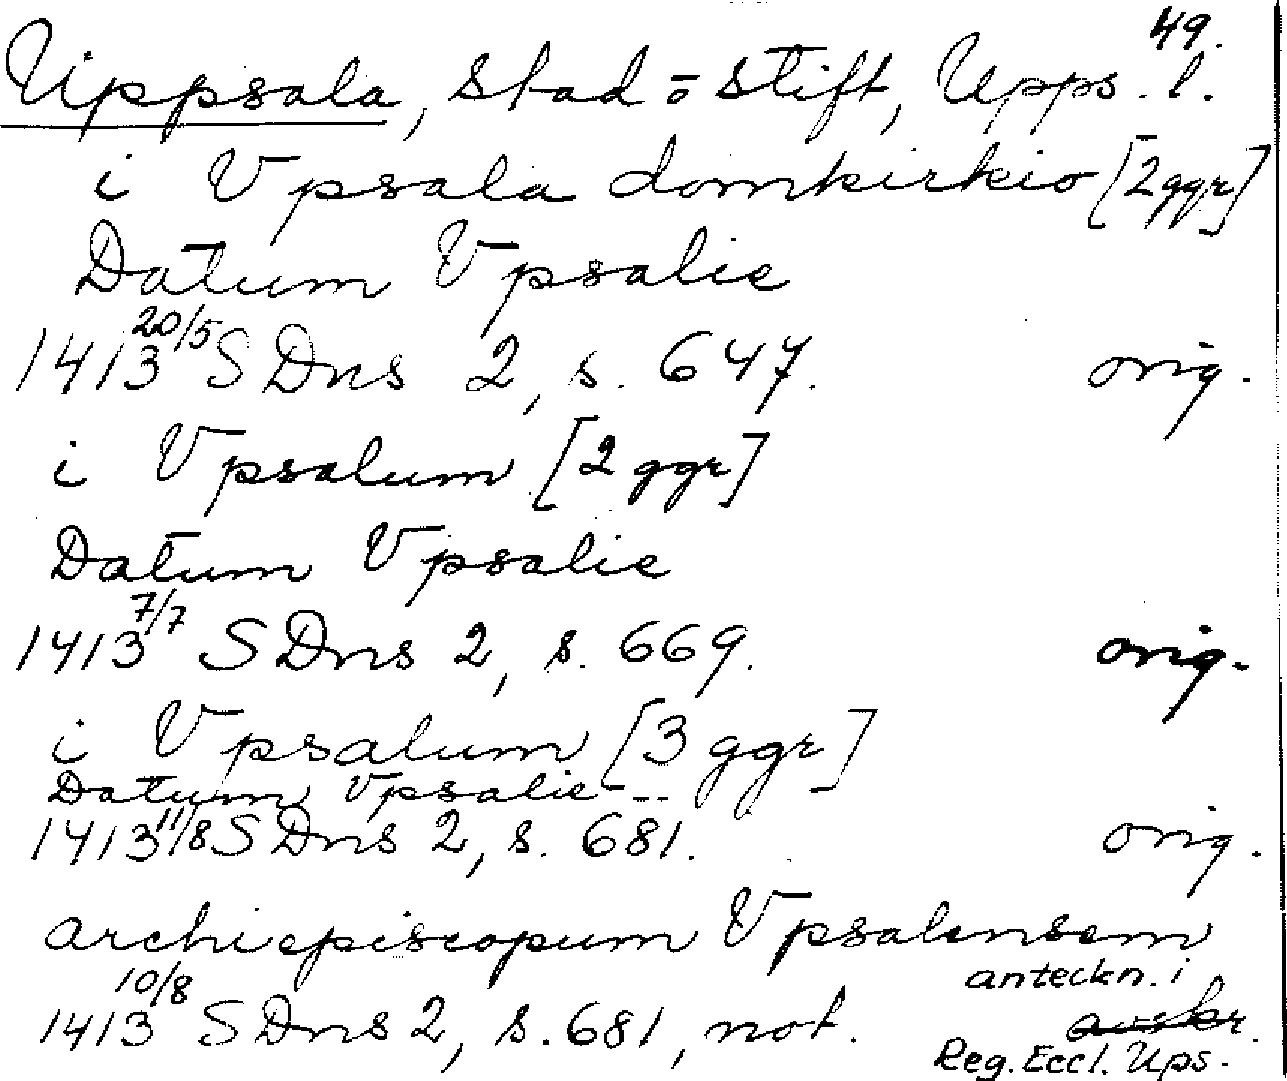 49.
Uppsala, stad o stift, Upps. l.
i Vpsala domkirkio [2 ggr]
Datum Vpsalie
1413 20/5 SDns 2, s. 647. orig.
i Vpsalum [2 ggr]
Datum Vpsalie
1413 7/7 SDns 2, s. 669. orig.
i Vpsalum [3 ggr]
Datum Vpsalie ---
1413 11/8 SDns 2, s. 681. orig.
archiepiscopum Vpsalensem
anteckn. i
1413 10/8 SDns 2, s. 681, not. avskr.
Reg. Eccl. Ups.